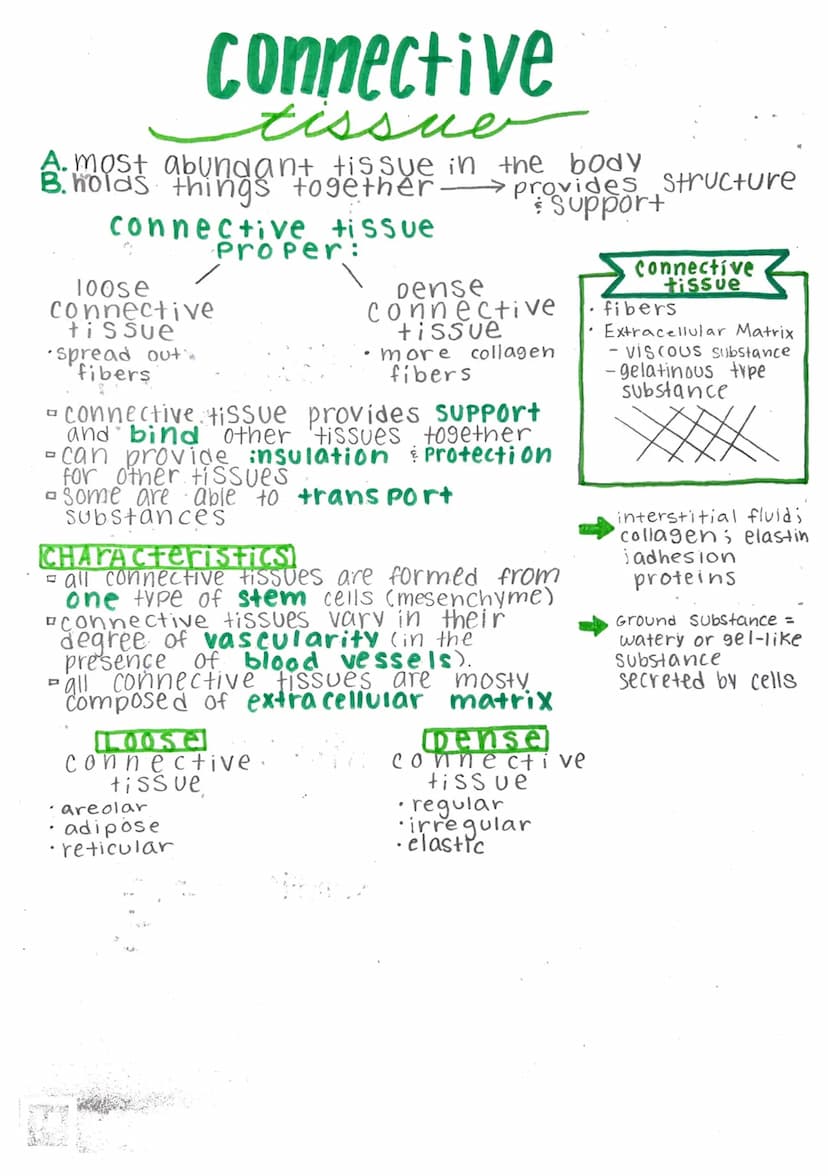 connective
tissue
A. most abundant tissue in the body
B. holds things together → provides structure
& support
connective tissue
proper:
loose
connective
tissue
• spread out
fibers
Dense
connective
tissue
• more collagen
fibers
connective
tissue
• fibers
• Extracellular Matrix
- viscous substance
- gelatinous type
substance
▫ connective tissue provides support
and bind other tissues together
▫ can provide insulation & protection
for other tissues
▫ some are able to transport
substances
→ interstitial fluid;
collagen; elastin
; adhesion
proteins
→ Ground substance =
watery or gel-like
substance
secreted by cells
CHARActeristics
▫ all connective tissues are formed from
one type of stem cells (mesenchyme)
▫ connective tissues vary in their
degree of vascularity (in the
presence of blood vessels).
▫ all connective tissues are mosty
composed of extracellular matrix
Loose
connective
tissue
• areolar
• adipose
• reticular
Dense
connective
tissue
• regular
• irregular
• elastic